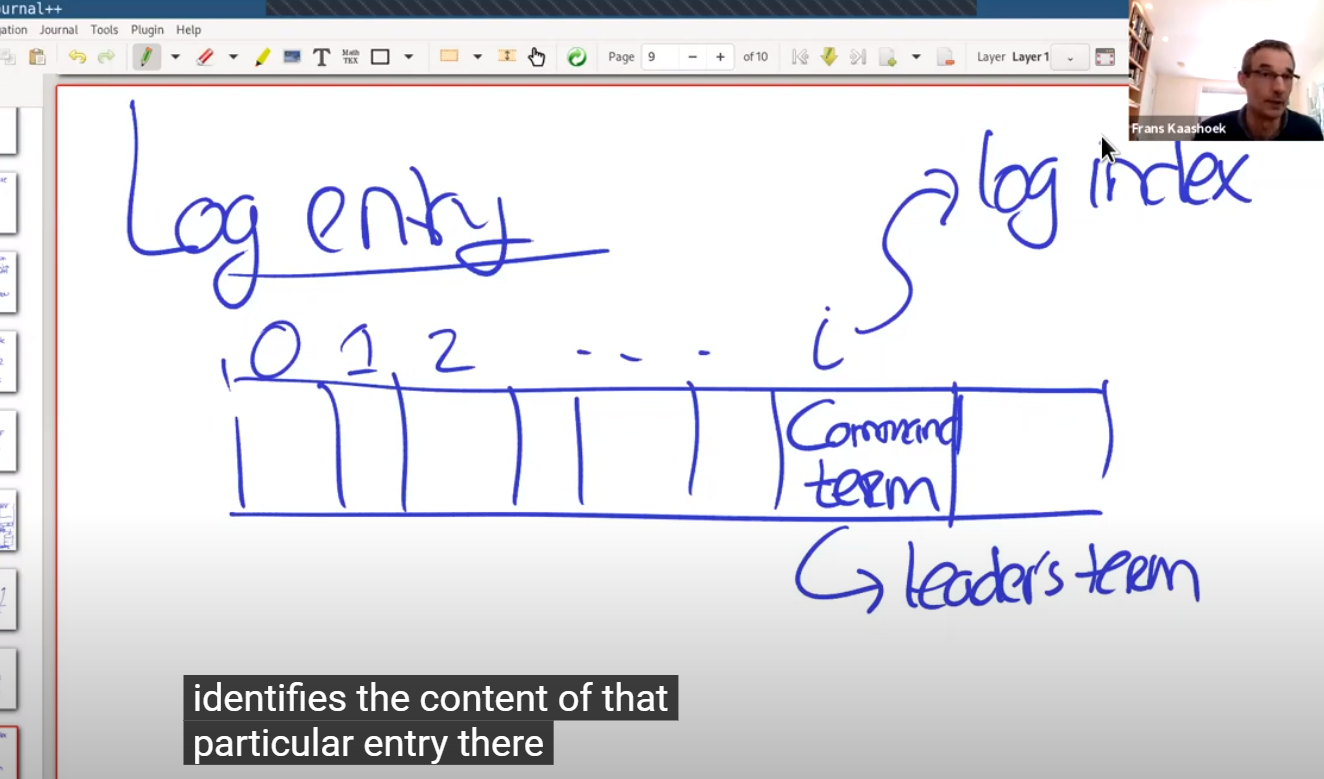 ournal++
ation Journal Tools Plugin Help
T Math TEX Page 9 − + of 10 Layer Layer 1
Frans Kaashoek
Log entry
log index
0 1 2 - - - i
Command
term
leader's term
identifies the content of that
particular entry there